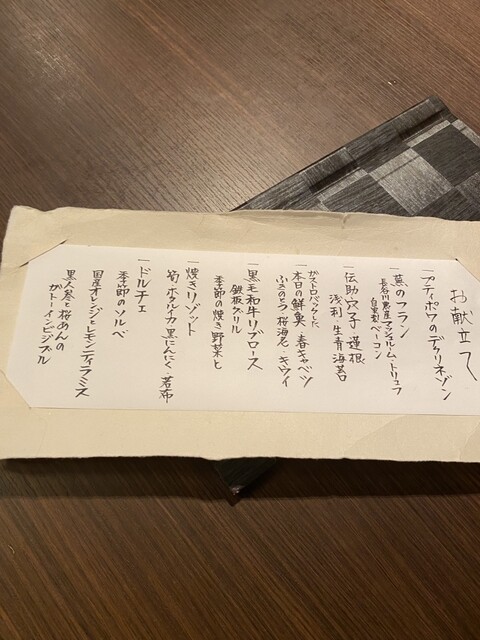 お献立て
一 プティポワのデクリネゾン
一 蕪のフラン
長谷川農産マッシュルーム・トリュフ
自家製ベーコン
一 伝助穴子 蓮根
浅利・生青海苔
ガストロバックした
一 本日の鮮魚 春キャベツ
ふきのとう・桜海老・キウイ
一 黒毛和牛リブロース
鉄板グリル
季節の焼き野菜と
一 焼きリゾット
筍・ホタルイカ・黒にんにく・若布
一 ドルチェ
季節のソルベ
国産オレンジとレモンティラミス
黒人参と桜あんの
ガトーインビジブル